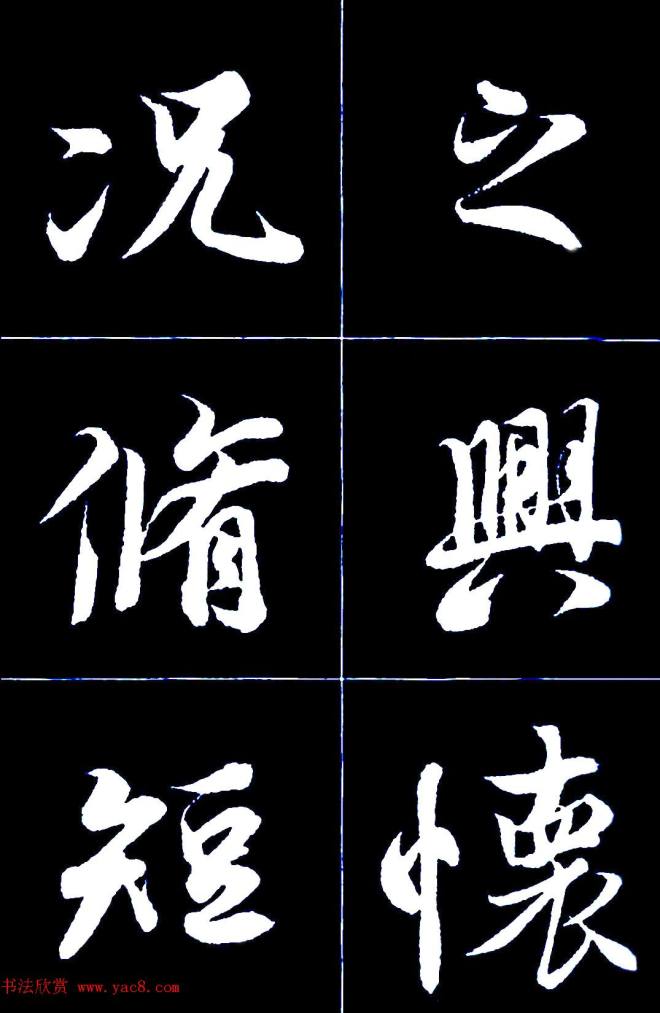 之興懷
况脩短
书法欣赏 www.yac8.com